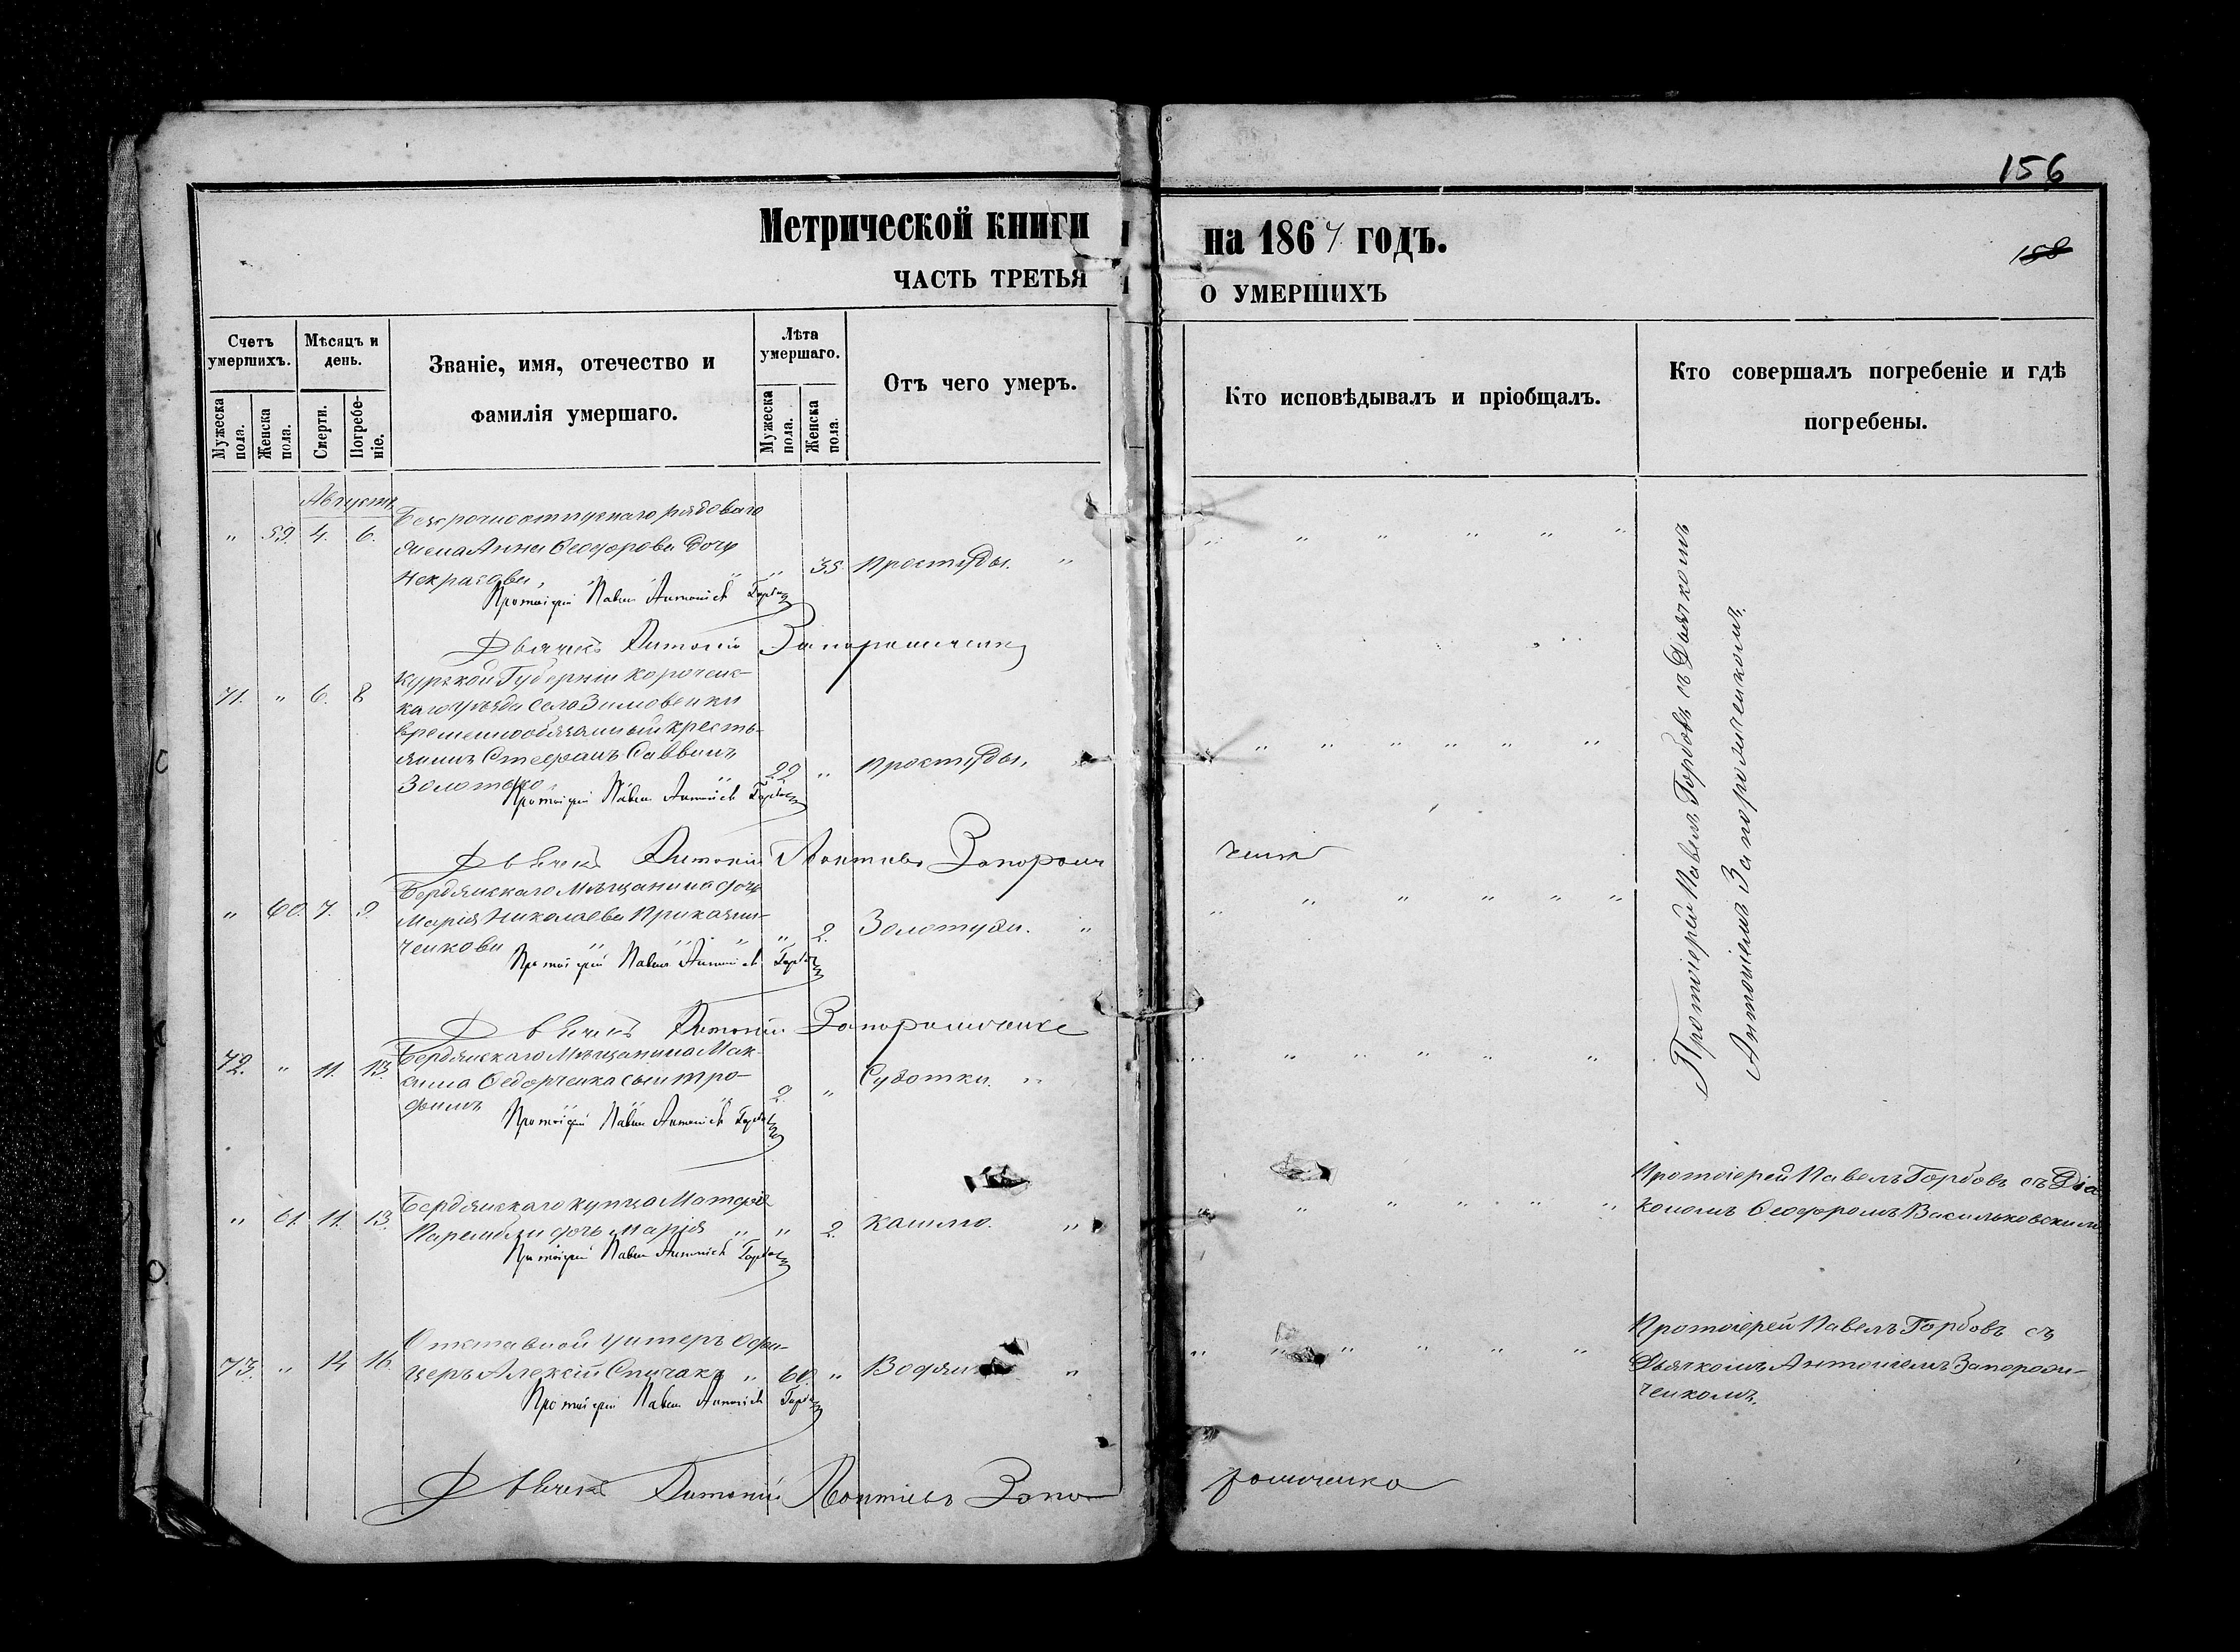 156
Метрической книги на 1867 годъ.
158
ЧАСТЬ ТРЕТЬЯ О УМЕРШИХЪ
Счетъ умершихъ.
Мужеска пола.
Женска пола.
Мѣсяцъ и день.
Смерти.
Погребеніе.
Званіе, имя, отечество и
фамилія умершаго.
Лѣта умершаго.
Мужеска пола.
Женска пола.
Отъ чего умеръ.
Кто исповѣдывалъ и пріобщалъ.
Кто совершалъ погребеніе и гдѣ
погребены.
Августъ
Безсрочноотпускнаго рядоваго
" 59. 4. 6. жена Анна Ѳеодорова дочь
Некрасова, " " 35. Простуды. "
Протоіерей Павелъ Антоніевъ Горбовъ
Дьячекъ Антоній Запорошченко
Курской Губерніи Короченс-
71. " 6. 8 каго уѣзда села Зимовеньки
временнообязанный кресть-
янинъ Стефанъ Саввинъ
Золотько. 22 " Простуды.
Протоіерей Павелъ Антоніевъ Горбовъ
Дьячекъ Антоній Леонтіевъ Запорошченко
Бердянскаго Мѣщанина дочь
" 60. 7. 9. Марія Николаева Приказчи-
ченкова " 2. Золотухи. "
Протоіерей Павелъ Антоніевъ Горбовъ
Дьячекъ Антоній Запорошченко
72. " 11. 13. Бердянскаго Мѣщанина Мак-
сима Ѳедорченка сынъ Тро-
фимъ 2. " Сухотки. "
Протоіерей Павелъ Антоніевъ Горбовъ
Бердянскаго купца Матфія
" 61. 11. 13. дочь Марія " " 2. Кашлю. "
Протоіерей Павелъ Антоніевъ Горбовъ
Отставной унтеръ Офи-
73. " 14 16. церъ Алексій Спичакъ " 60. "
Протоіерей Павелъ Антоніевъ Горбовъ
Дьячекъ Антоній Леонтіевъ Запорошченко
Протоіерей Павелъ Горбовъ съ Дьячкомъ
Антоніемъ Запорожченкомъ.
Протоіерей Павелъ Горбовъ съ Діа
кономъ Ѳеодоромъ Васильковскимъ
Протоіерей Павелъ Горбовъ съ
Дьячкомъ Антоніемъ Запорож-
ченкомъ.